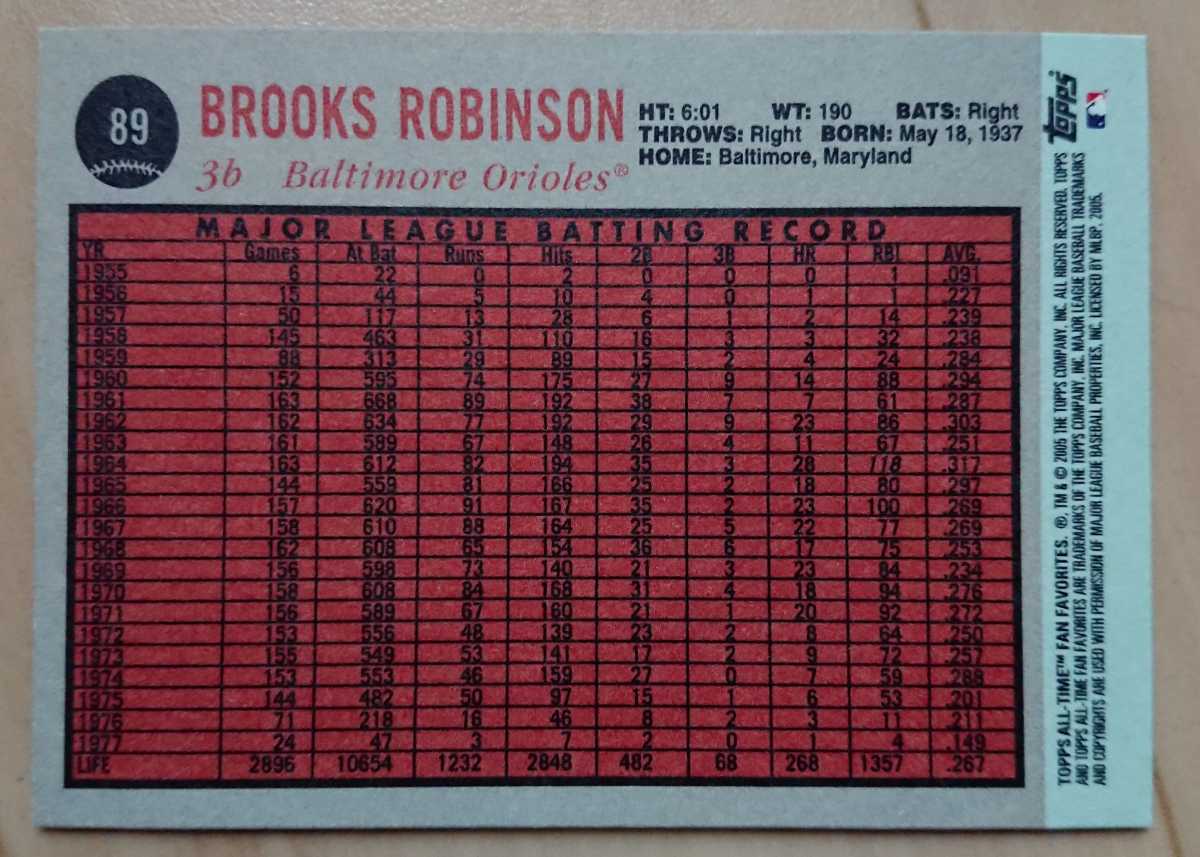 89
BROOKS ROBINSON
3b Baltimore Orioles®
HT: 6:01 WT: 190 BATS: Right
THROWS: Right BORN: May 18, 1937
HOME: Baltimore, Maryland
MAJOR LEAGUE BATTING RECORD
YR Games At Bat Runs Hits 2B 3B HR RBI AVG.
1955 6 22 0 2 0 0 0 1 .091
1956 15 44 5 10 4 0 1 1 .227
1957 50 117 13 28 6 1 2 14 .239
1958 145 463 31 110 16 3 3 32 .238
1959 88 313 29 89 15 2 4 24 .284
1960 152 595 74 175 27 9 14 88 .294
1961 163 668 89 192 38 7 7 61 .287
1962 162 634 77 192 29 9 23 86 .303
1963 161 589 67 148 26 4 11 67 .251
1964 163 612 82 194 35 3 28 118 .317
1965 144 559 81 166 25 2 18 80 .297
1966 157 620 91 167 35 2 23 100 .269
1967 158 610 88 164 25 5 22 77 .269
1968 162 608 65 154 36 6 17 75 .253
1969 156 598 73 140 21 3 23 84 .234
1970 158 608 84 168 31 4 18 94 .276
1971 156 589 67 160 21 1 20 92 .272
1972 153 556 48 139 23 2 8 64 .250
1973 155 549 53 141 17 2 9 72 .257
1974 153 553 46 159 27 0 7 59 .288
1975 144 482 50 97 15 1 6 53 .201
1976 71 218 16 46 8 2 3 11 .211
1977 24 47 3 7 2 0 1 4 .149
LIFE 2896 10654 1232 2848 482 68 268 1357 .267
TOPPS
TOPPS ALL-TIME™ FAN FAVORITES. ®, TM & © 2005 THE TOPPS COMPANY, INC. ALL RIGHTS RESERVED. TOPPS
AND TOPPS ALL-TIME FAN FAVORITES ARE TRADEMARKS OF THE TOPPS COMPANY, INC. MAJOR LEAGUE BASEBALL TRADEMARKS
AND COPYRIGHTS ARE USED WITH PERMISSION OF MAJOR LEAGUE BASEBALL PROPERTIES, INC. LICENSED BY MLBP, 2005.